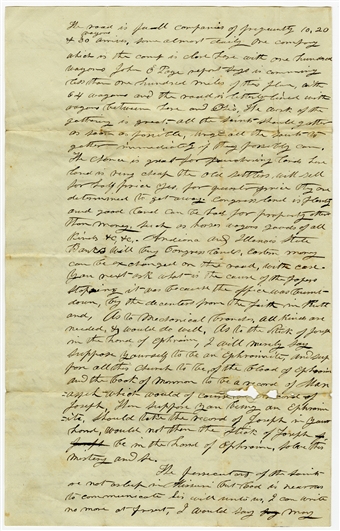 The road is full companies of frequently 10, 20
wagons
& 30 arrive, some almost daily One company
which is the camp is close here with one hundred
wagons John E Page reports he is comeing
less than one hundred miles of this place, with
64 wagons and the road is litterly lined with
wagons between here and Ohio, The work of the
gathering is great, all the Saints should gather
as soon as possible, urge all the Saints to
gather immediately if they possibly can.
The chance is great for purchasing land here
land is very cheap the old settlers will sell
for half price yes, for quarter price they are
determined to get away Congress land is plenty
and good land can be had for property other
than money, such as horses wagons goods of all
kinds &c, &c. Indiana and Illinois State
Banks will buy Congress land, eastern money
can be exchanged on the road, with ease
You next ask what is the cause of the papers
stoping it was because the office was thrown
down, by the dissenters from the faith in Kirtl
and, As to Mechanical branches, all kinds are
needed, & would do well, As to the Stick of Joseph
in the hand of Ephraim, I will merely say
suppose yourself to be an Ephraimite, And sup
pose all this church to be of the blood of Ephraim
and the book of Mormon to be a record of Man
asseh which would of
Joseph, Then suppose you being an Ephraim
ite, Should take the record of Joseph in your
hand, would not then the Stick of Joseph
be in the hand of Ephraim, solve this
mistery and se.
The persecutors of the Saints
are not asleep in Missouri but God is
to communicate his will unto us, I can write
no more at preset, I would say